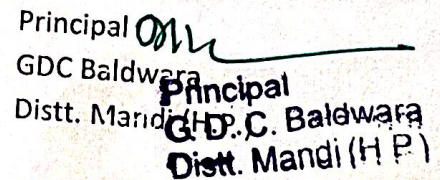 Principal
GDC Baldwara
Distt. Mandi (H.P.)
Principal
G.D.C. Baldwara
Distt. Mandi (H P)